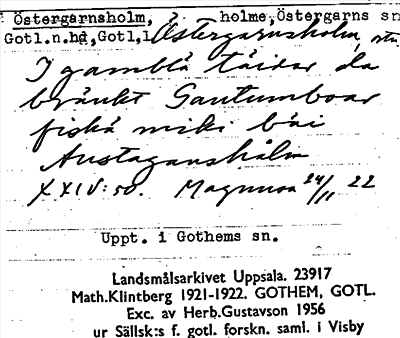 Östergarnsholm, holme, Östergarns sn
Gotl.n.hd, Gotl.l. Östergarnsholm, stu
I gamblä täidar da
bräukt Gautumboar
fiskä miki bäi
Austaganshålm
XXIV:50. Magnusa 24/11 22
Uppt. i Gothems sn.
Landsmålsarkivet Uppsala. 23917
Math.Klintberg 1921-1922. GOTHEM, GOTL.
Exc. av Herb.Gustavson 1956
ur Sällsk:s f. gotl. forskn. saml. i Visby